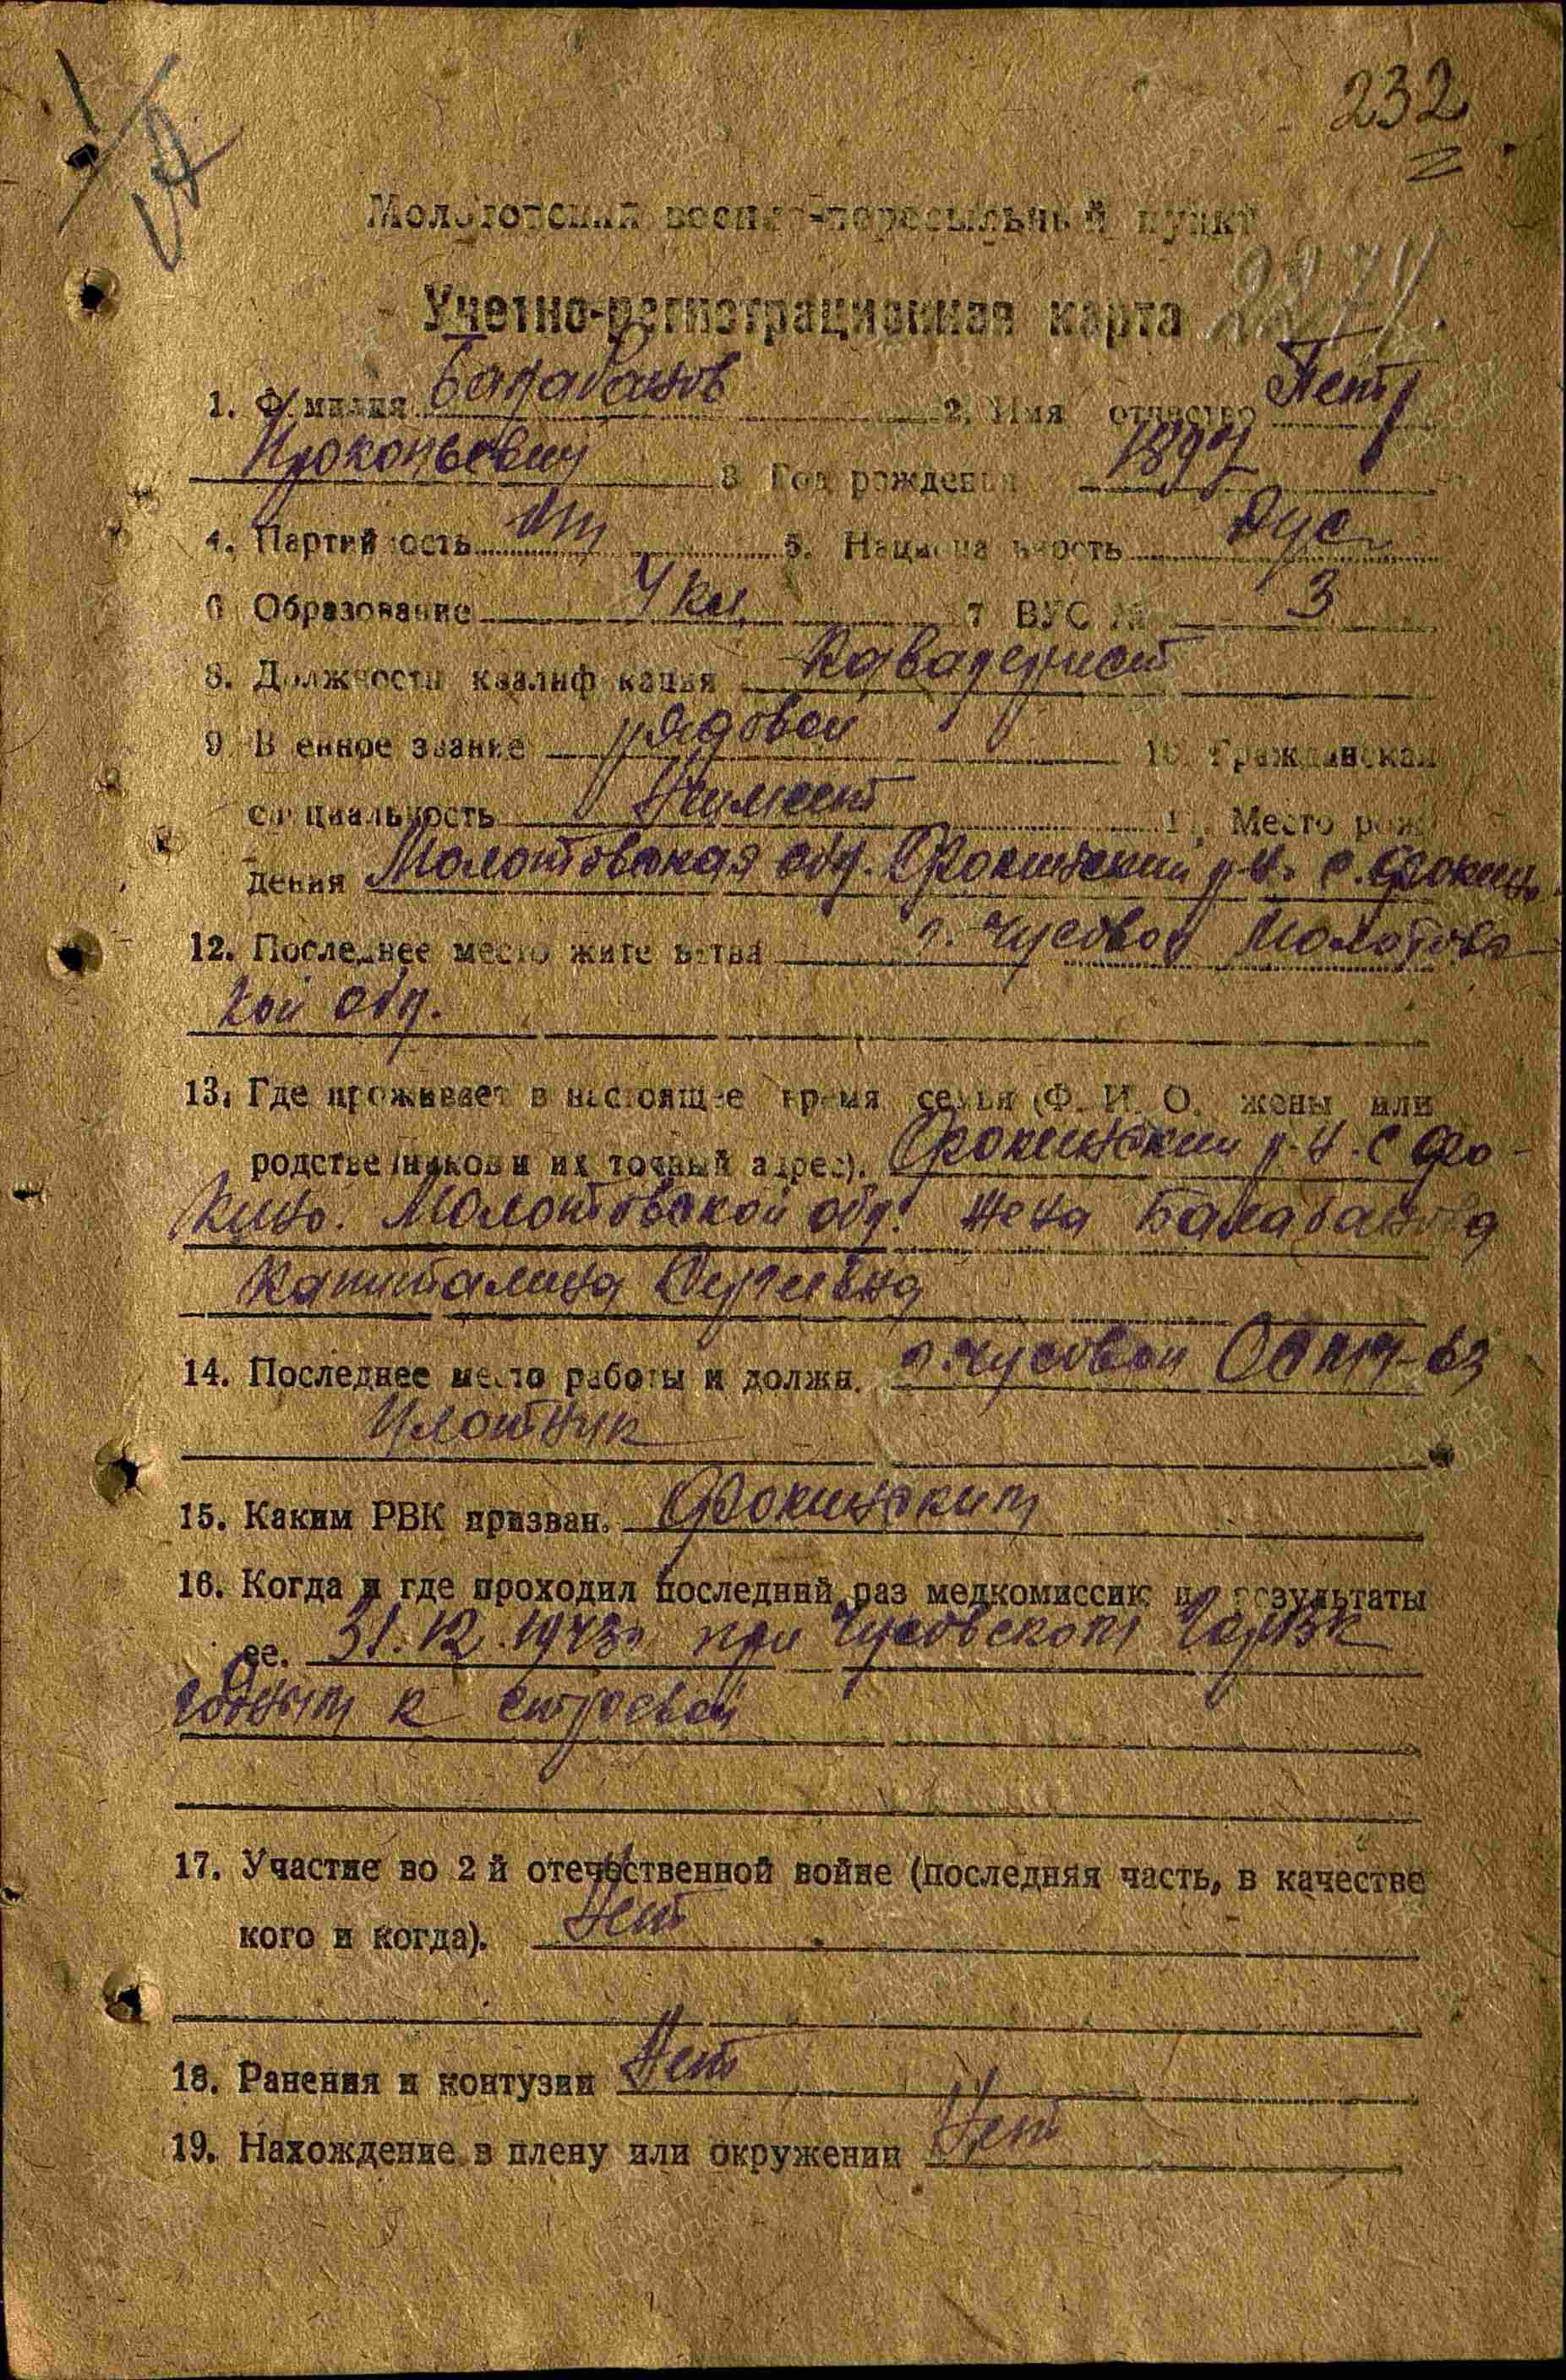 232
Молотовский военно-пересыльный пункт
Учетно-регистрационная карта
1. Фамилия Балабанов 2. Имя отчество Петр
Прокопьевич 3 Год рождения 1897
4. Партийность 5. Национальность Рус
6 Образование 4 кл. 7 ВУС № 3
8. Должность квалификация Кавалерист
9 Военное звание рядовой 10. Гражданская
специальность 11. Место рож
дения Молотовская обл. Фокинский р-н. с. Фокино
12. Последнее место жительства г. Чусовой Молотовс
кой обл.
13. Где проживает в настоящее время семья (Ф. И. О. жены или
родственников и их точный адрес). Фокинский р-н. с Фо-
кино. Молотовской обл. жена Балабанова
Капиталина Сергеевна
14. Последнее место работы и должн. г. Чусовой 63
Плотник
15. Каким РВК призван. Фокинским
16. Когда и где проходил последний раз медкомиссию и результаты
ее. 31.12.1943г при Чусовском ГорВК
годным к строевой
17. Участие во 2 й отечественной войне (последняя часть, в качестве
кого и когда). Нет
18. Ранения и контузии Нет
19. Нахождение в плену или окружении Нет